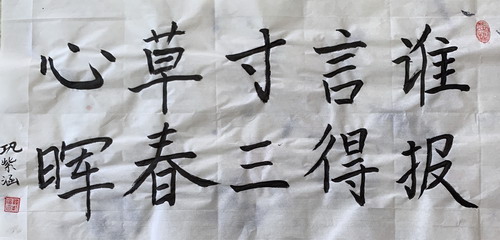 谁言寸草心
报得三春晖
巩紫涵